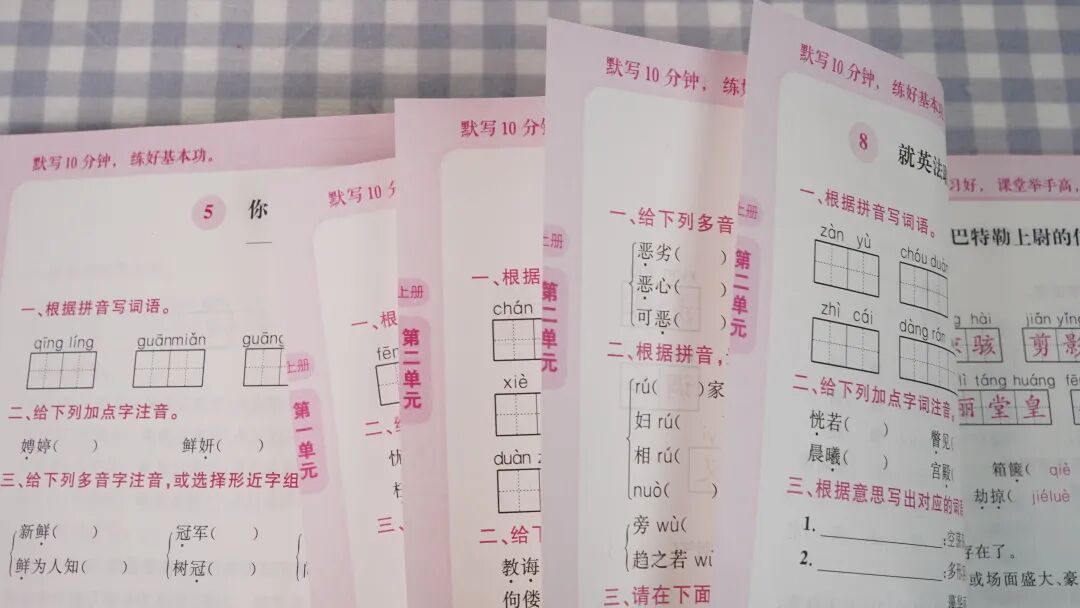 默写10分钟，练好基本功。
5 你
一、根据拼音写词语。
qīng líng guānmiǎn guāng
二、给下列加点字注音。
娉婷( ) 鲜妍( )
三、给下列多音字注音,或选择形近字组
新鲜( ) 冠军( )
鲜为人知( ) 树冠( )
上册
第一单元
默写10分
一、根
fēn
二、
三、
上册
第二单元
默写10分钟
一、根据
chán
xiè
duàn z
二、给下
教诲
佝偻
上册
第二单元
默写10分钟，练好
一、给下列多音
恶劣( )
恶心( )
可恶( )
二、根据拼音,
rú( )家
妇rú(
相rú(
nuò( )
旁wù(
趋之若wù
三、请在下面
上册
第二单元
默写10分钟，练好基本功
8 就英法
一、根据拼音写词语。
zàn yù chóu duàn
zhì cái dàng rán
二、给下列加点字词注音。
恍若( ) 瞥见(
晨曦( ) 宫殿(
三、根据意思写出对应的词语
1. :空荡
2. :多形
习好，课堂举手高，
巴特勒上尉的信
g hài jiǎn yǐng
骇 剪影
lì táng huáng
丽堂皇
箱箧 qiè
劫掠( jiéluè
存在了。
或场面盛大、豪